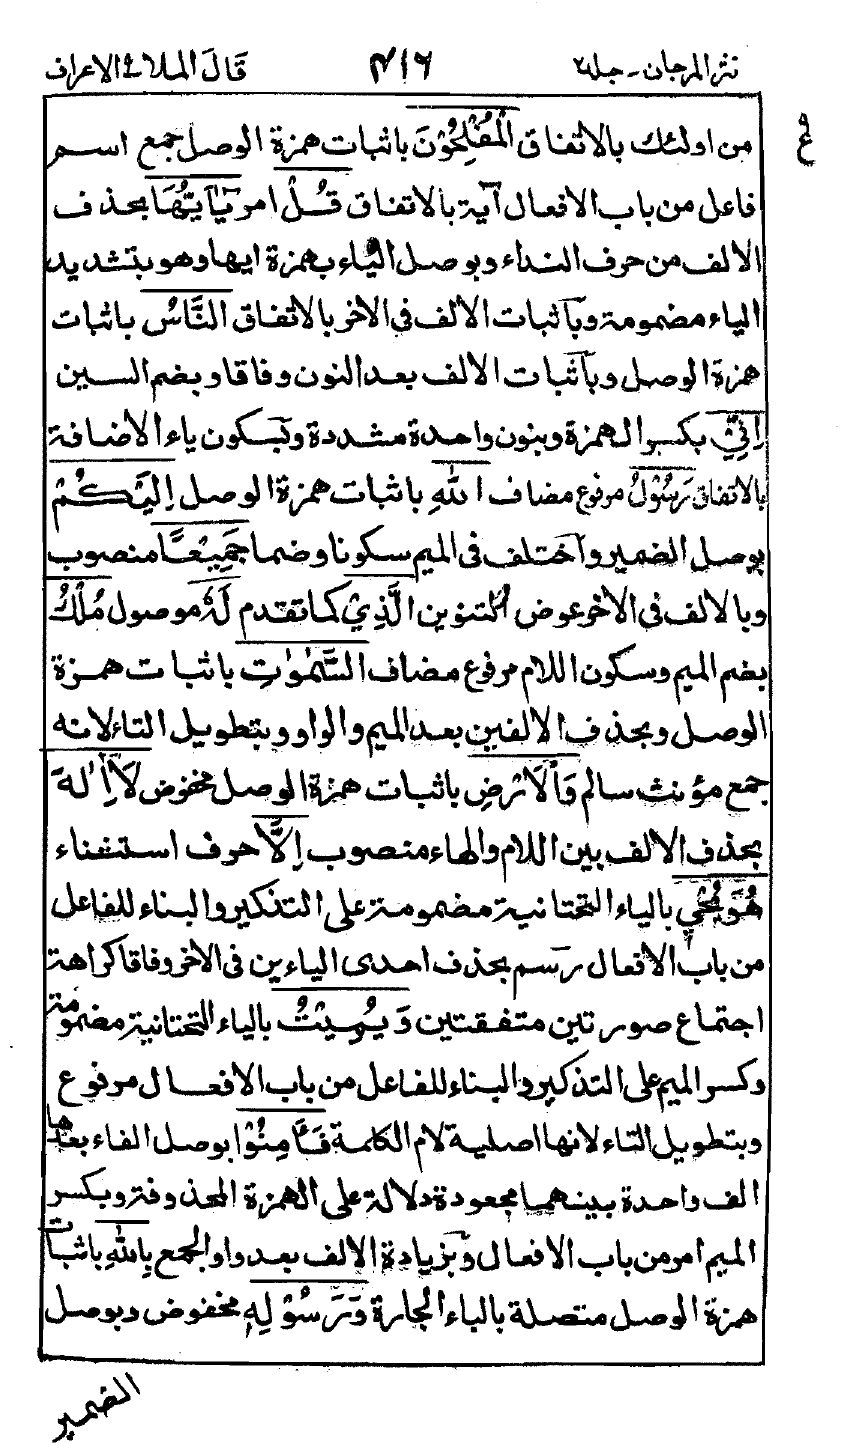 نثر المرجان - جلد٢ ٤١٦ قال الملا ٩ الاعراف
ع
من اولئك بالاتفاق الْمُفْلِحُوْنَ باثبات همزة الوصل جمع اسم
فاعل من باب الافعال آية بالاتفاق قُلْ امر يٰٓاَيُّهَا بحذف
الالف من حرف النداء وبوصل الياء بهمزة ايها وهو بتشديد
الياء مضمومة وباثبات الالف فى الاخر بالاتفاق النَّاسُ باثبات
همزة الوصل وباثبات الالف بعد النون وفاقا وبضم السين
اِنِّيْ بكسر الهمزة وبنون واحدة مشددة وبسكون ياء الاضافة
بالاتفاق رَسُوْلُ مرفوع مضاف اللهِ باثبات همزة الوصل اِلَيْكُمْ
بوصل الضمير واختلف فى الميم سكونا وضما جَمِيْعًا منصوب
وبالالف فى الاخر عوض التنوين الَّذِيْ كما تقدم لَهٗ موصول مُلْكُ
بضم الميم وسكون اللام مرفوع مضاف السَّمٰوٰتِ باثبات همزة
الوصل وبحذف الالفين بعد الميم والواو وبتطويل التاء لانه
جمع مؤنث سالم وَالْاَرْضِ باثبات همزة الوصل مخفوض لَآ اِلٰهَ
بحذف الالف بين اللام والهاء منصوب اِلَّا حرف استثناء
هُوَ يُحْيٖ بالياء التحتانية مضمومة على التذكير والبناء للفاعل
من باب الافعال رسم بحذف احدى الياءين فى الاخر وفاقا كراهة
اجتماع صورتين متفقتين وَيُمِيْتُ بالياء التحتانية مضمومة
وكسر الميم على التذكير والبناء للفاعل من باب الافعال مرفوع
وبتطويل التاء لانها اصلية لام الكلمة فَاٰمِنُوْا بوصل الفاء بعدها
الف واحدة بينهما مجعودة دلالة على الهمزة المحذوفة وبكسر
الميم امر من باب الافعال وبزيادة الالف بعد واو الجمع بِاللهِ باثبات
همزة الوصل متصلة بالباء الجارة وَرَسُوْلِهِ مخفوض وبوصل
الضمير